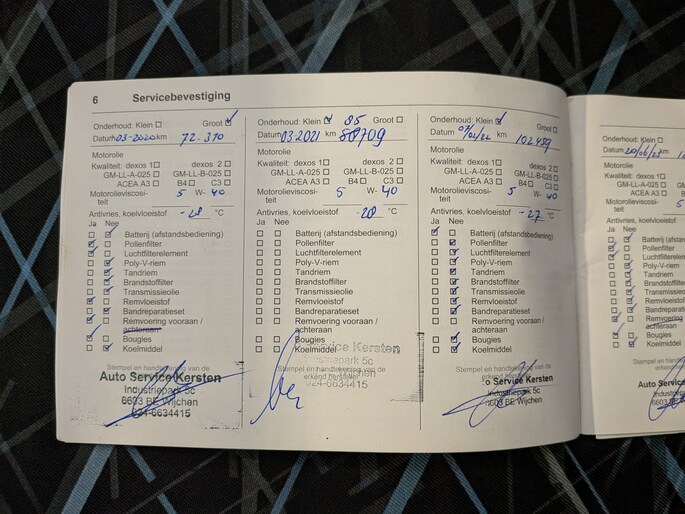 6 Servicebevestiging
Onderhoud: Klein Groot
Datum 03-2020 km 72.370
Motorolie
Kwaliteit: dexos 1 dexos 2
GM-LL-A-025 GM-LL-B-025
ACEA A3 B4 C3
Motorolieviscosi- 5 W- 40
teit
Antivries, koelvloeistof -28 °C
Ja Nee
Batterij (afstandsbediening)
Pollenfilter
Luchtfilterelement
Poly-V-riem
Tandriem
Brandstoffilter
Transmissieolie
Remvloeistof
Bandreparatieset
Remvoering vooraan /
achteraan
Bougies
Koelmiddel
Stempel en handtekening van de
Auto Service Kersten
Industriepark 5c
6603 BE Wijchen
024-6634415
Onderhoud: Klein Groot
Datum 03-2021 km
Motorolie
Kwaliteit: dexos 1 dexos 2
GM-LL-A-025 GM-LL-B-025
ACEA A3 B4 C3
Motorolieviscosi- 5 W- 40
teit
Antivries, koelvloeistof -28 °C
Ja Nee
Batterij (afstandsbediening)
Pollenfilter
Luchtfilterelement
Poly-V-riem
Tandriem
Brandstoffilter
Transmissieolie
Remvloeistof
Bandreparatieset
Remvoering vooraan /
achteraan
Bougies
Koelmiddel
Service Kersten
Stempel en handtekening van de
erkend hersteller
024-6634415
Onderhoud: Klein Groot
Datum km 102489
Motorolie
Kwaliteit: dexos 1 dexos 2
GM-LL-A-025 GM-LL-B-025
ACEA A3 B4 C3
Motorolieviscosi- 5 W- 40
teit
Antivries, koelvloeistof -27 °C
Ja Nee
Batterij (afstandsbediening)
Pollenfilter
Luchtfilterelement
Poly-V-riem
Tandriem
Brandstoffilter
Transmissieolie
Remvloeistof
Bandreparatieset
Remvoering vooraan /
achteraan
Bougies
Koelmiddel
Stempel en handtekening van de
erkend hersteller
o Service Kersten
Industriepark 5c
6603 BE Wijchen
Onderhoud: Klein
Datum
Motorolie
Kwaliteit: dexos 1
GM-LL-A-025
ACEA A3
Motorolieviscosi- 5
teit
Antivries, koelvloeistof
Ja Nee
Batterij (afstands
Pollenfilter
Luchtfilterelement
Poly-V-riem
Tandriem
Brandstoffilter
Transmissieolie
Remvloeistof
Bandreparatieset
Remvoering
achteraan
Bougies
Koelmiddel
Stempel en hand
Auto Servi
Industri
6603 B